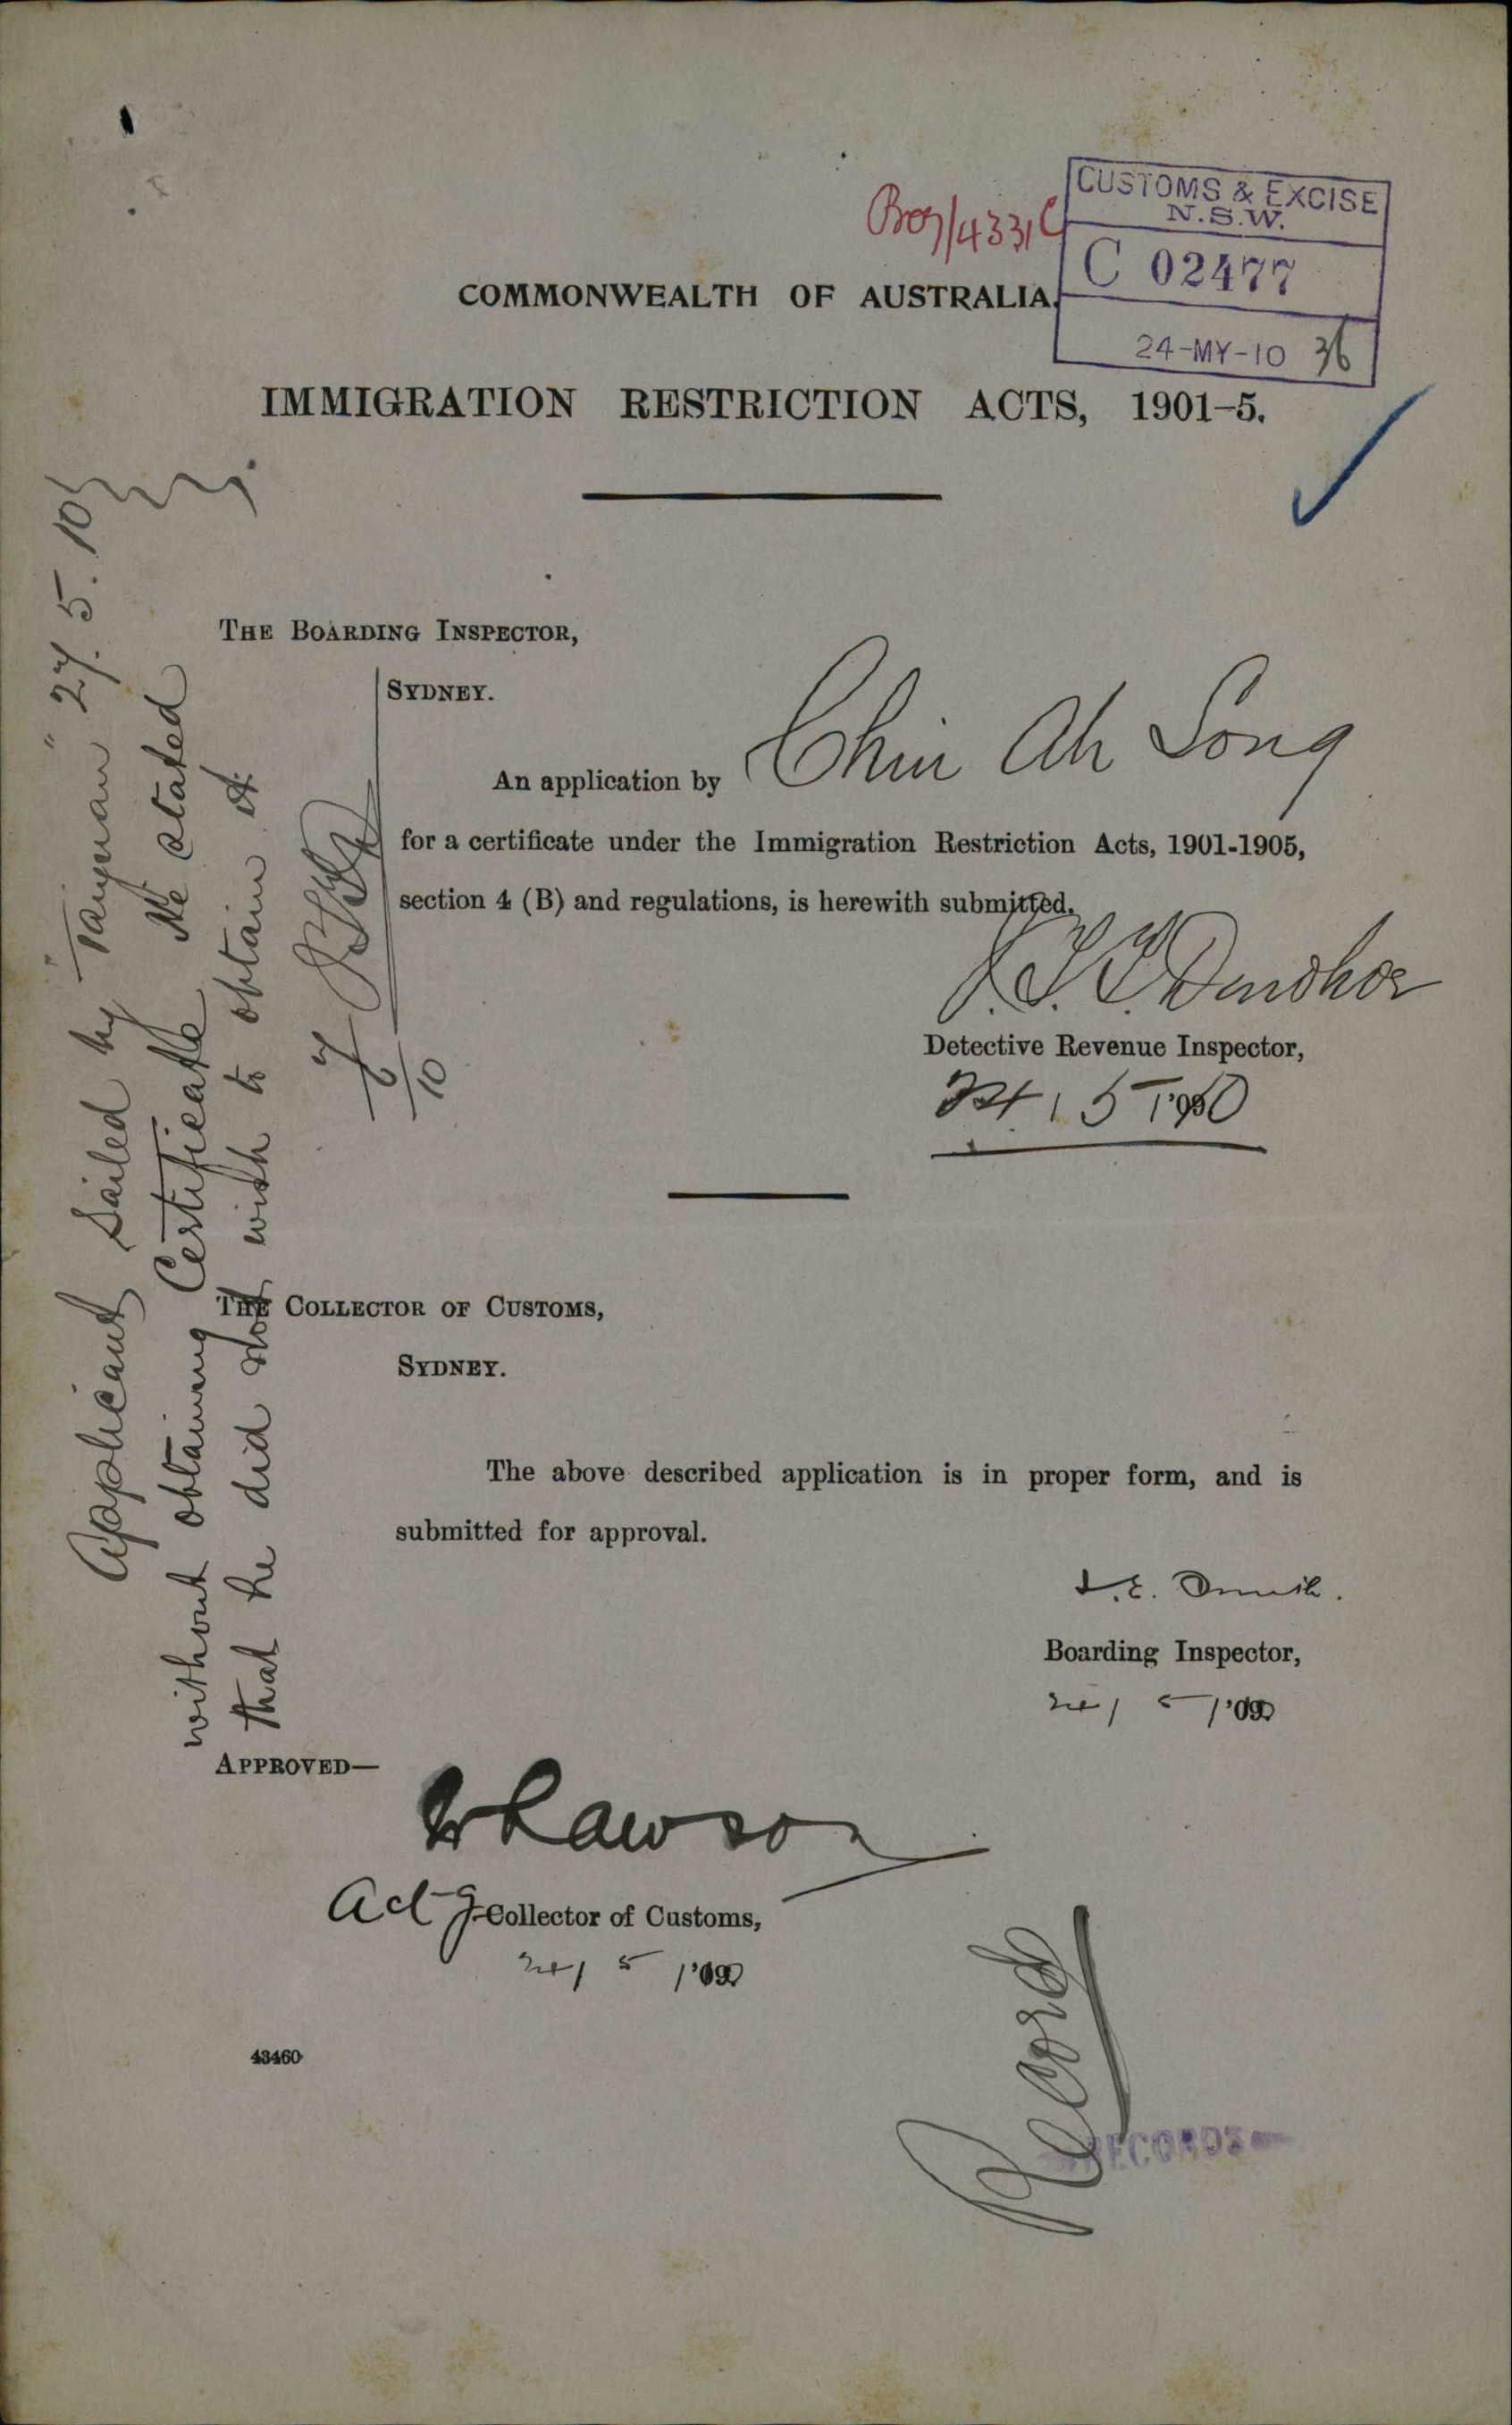 CUSTOMS & EXCISE
N.S.W.
C 02477
24-MY-10 36
COMMONWEALTH OF AUSTRALIA.
IMMIGRATION RESTRICTION ACTS, 1901-5.
THE BOARDING INSPECTOR,
SYDNEY.
An application by Chin Ah Song
for a certificate under the Immigration Restriction Acts, 1901-1905,
section 4 (B) and regulations, is herewith submitted.
J.T.T. Donohoe
Detective Revenue Inspector,
24/5/1910
Applicant sailed by "Taiyuan" 27.5.10
without obtaining Certificate He stated
that he did not wish to obtain it
7/6/10
THE COLLECTOR OF CUSTOMS,
SYDNEY.
The above described application is in proper form, and is
submitted for approval.
Boarding Inspector,
24/5/
APPROVED—
Lawson
Actg Collector of Customs,
24/5/
43460
Record
RECORDS